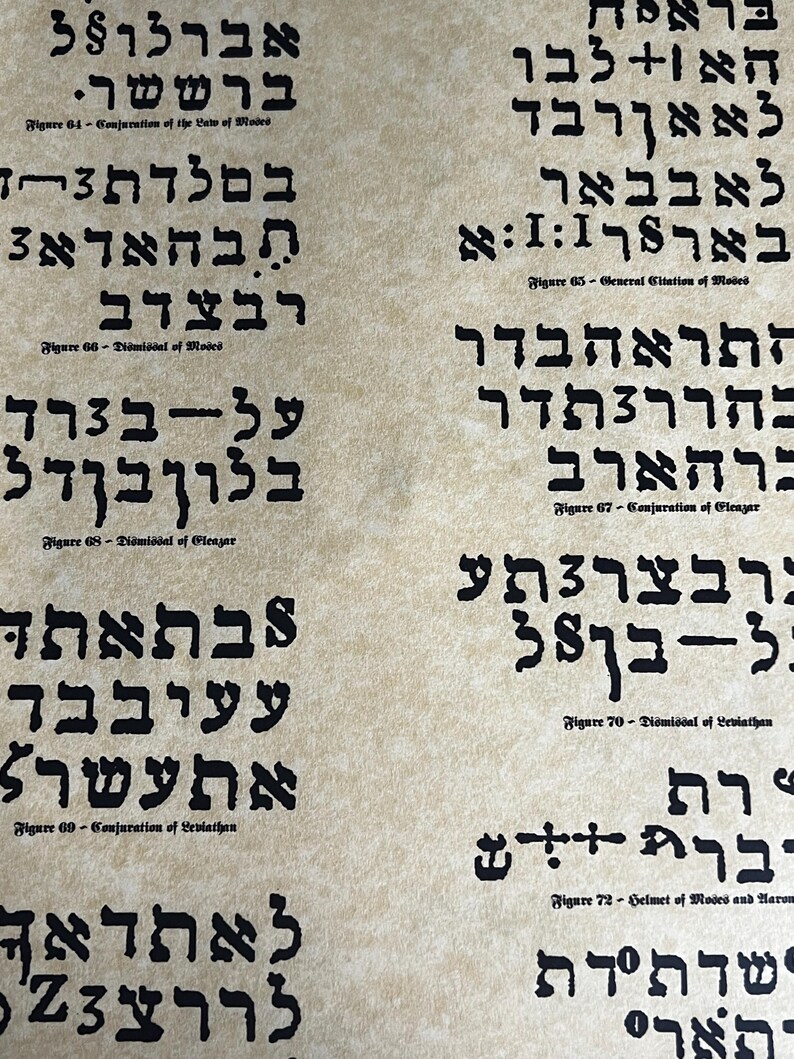 אברלו§ל
ברששר·
Figure 64 – Conjuration of the Law of Moses
בםלדת3
בהאדא3
רבצדב
Figure 66 – Dismissal of Moses
על—ב3רד
בלוןבןדל
Figure 68 – Dismissal of Eleazar
Sבתאתד
עעיבבד
אתעשר
Figure 69 – Conjuration of Leviathan
לאתדא
לררצ3Z
האו+לבו
לאאןרבד
לאבבאר
בארSרI:I:א
Figure 65 – General Citation of Moses
התראהבדר
בהרר3תדר
ברהארב
Figure 67 – Conjuration of Eleazar
ברבצר3תע
ל—בןSל
Figure 70 – Dismissal of Leviathan
רת
דבר
Figure 72 – Helmet of Moses and Aaron
שדת